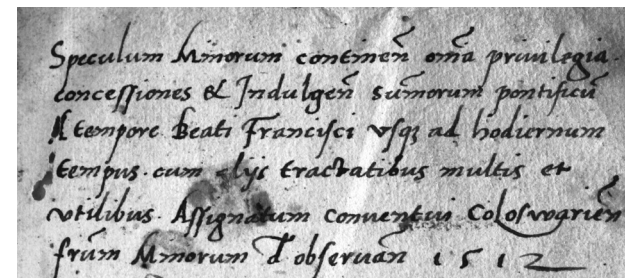 Speculum Minorum contineñ om̃a priuilegia
concessiones & Indulgeñ sum̃orum pontificũ
A tempore Beati Francisci vsqꝫ ad hodiernum
tempus cum alijs tractatibus multis et
vtilibus Assignatum conuentui Coloswarieñ
frũm Minorum d̃ obseruañ 1512